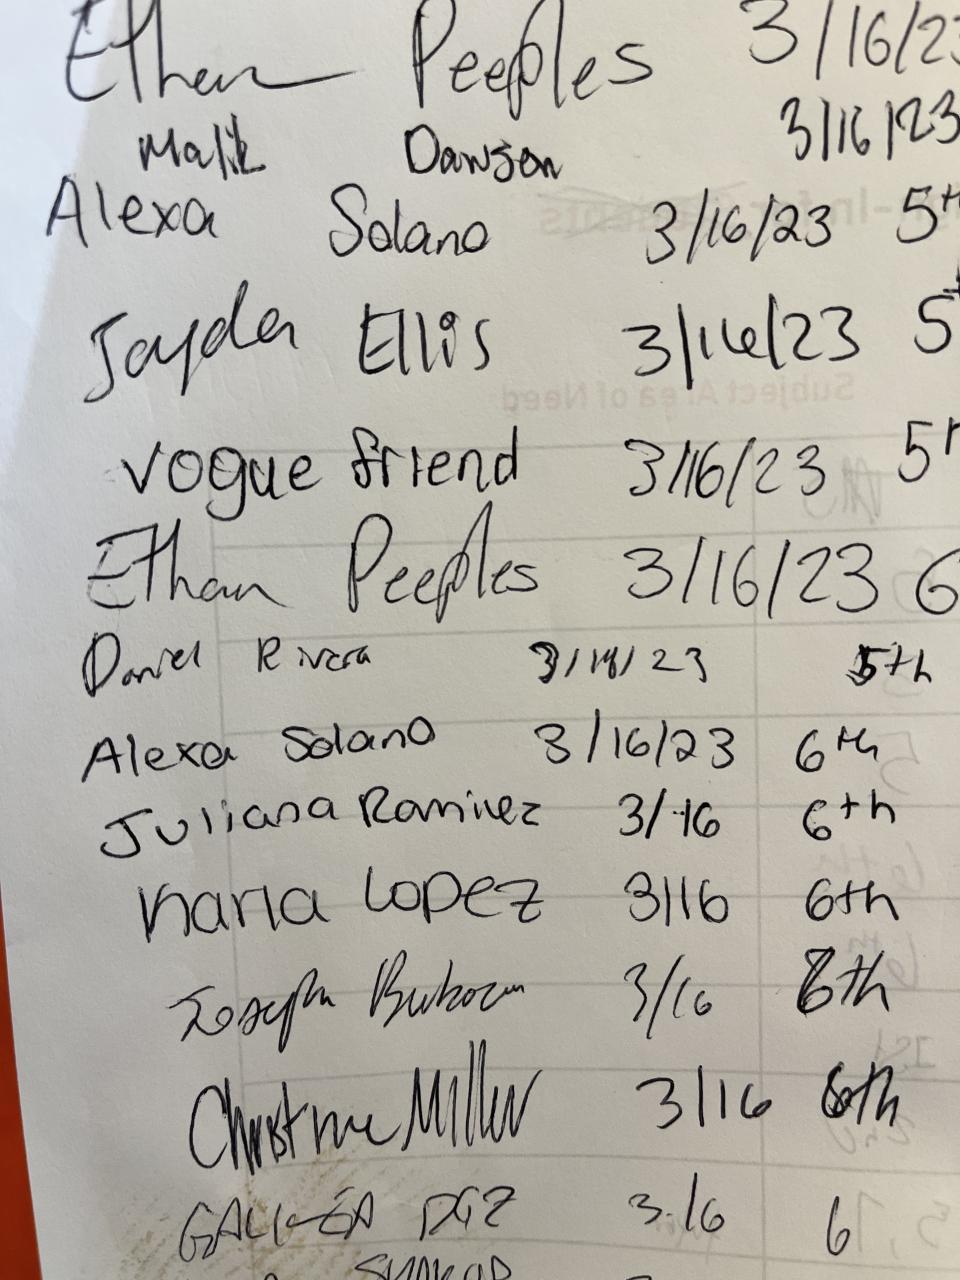 Ethan Peeples 3/16/23
Malik Dawson 3/16/23
Alexa Solano 3/16/23 5th
Jayda Ellis 3/16/23 5t
vogue friend 3/16/23 5
Ethan Peeples 3/16/23 6
Daniel Rivera 3/ /23 5th
Alexa Solano 3/16/23 6th
Juliana Ramirez 3/16 6th
Karla Lopez 3/16 6th
Joseph 3/16 6th
Christine Miller 3/16 6th
3.16 6
Subject Area of Need